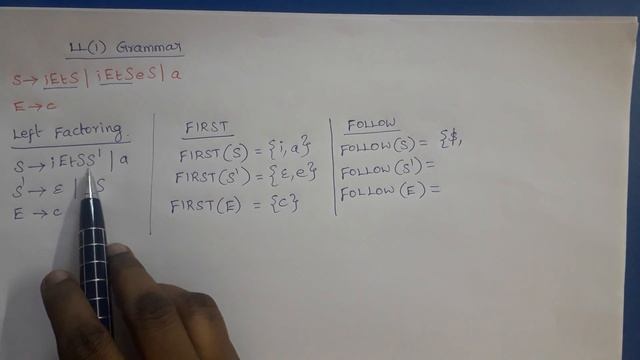 LL(1) Grammar
S→ iEtS | iEtSeS | a
E→c
Left Factoring
S→ iEtSS' | a
S'→ ε | S
E→c
FIRST
FIRST(S) = {i,a}
FIRST(S') = {ε,e}
FIRST(E) = {c}
FOLLOW
FOLLOW(S) = {$,
FOLLOW(S') =
FOLLOW(E) =